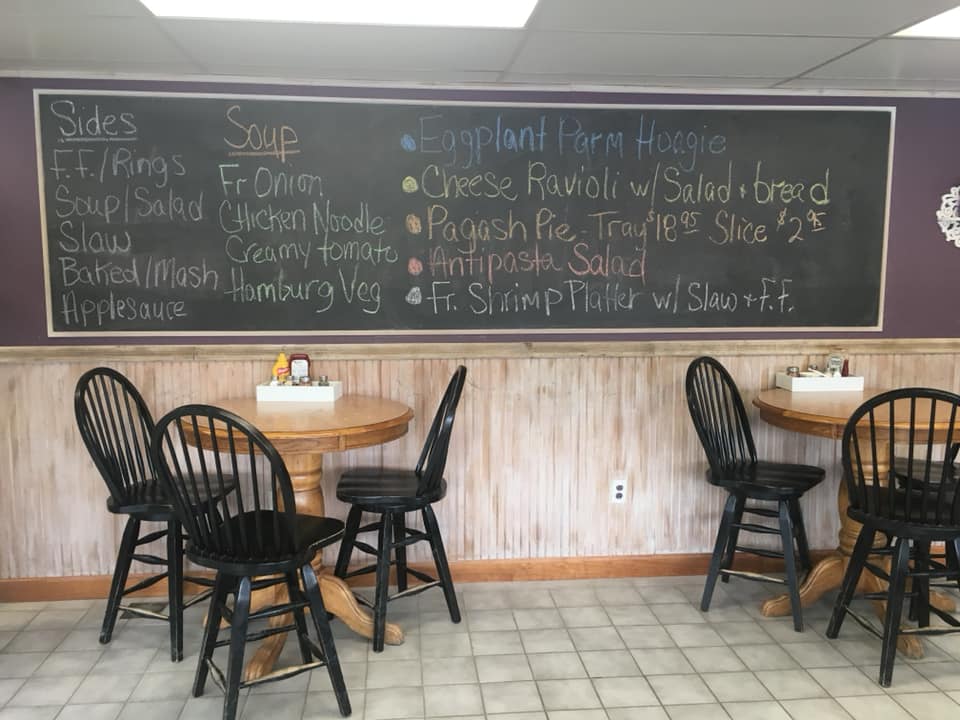 Sides
F.F./Rings
Soup/Salad
Slaw
Baked/Mash
Applesauce
Soup
Fr Onion
Chicken Noodle
Creamy tomato
Hamburg Veg
Eggplant Parm Hoagie
Cheese Ravioli w/ Salad + bread
Pagash Pie - Tray $18.95 Slice $2.95
Antipasta Salad
Fr. Shrimp Platter w/ Slaw + f.f.